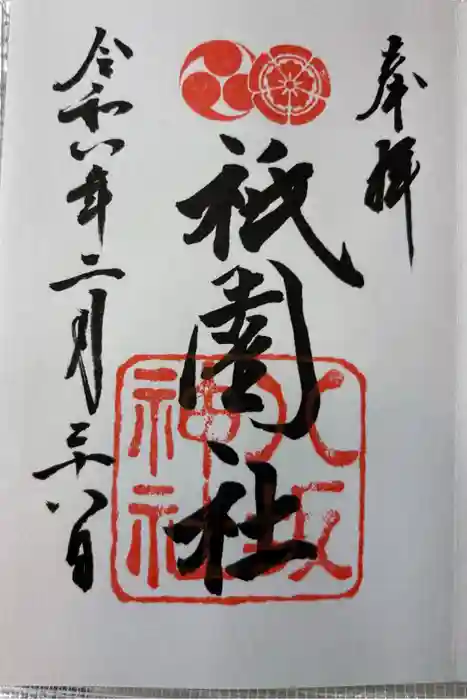 奉拝
祇園社
八坂
神社
令和八年二月二十八日